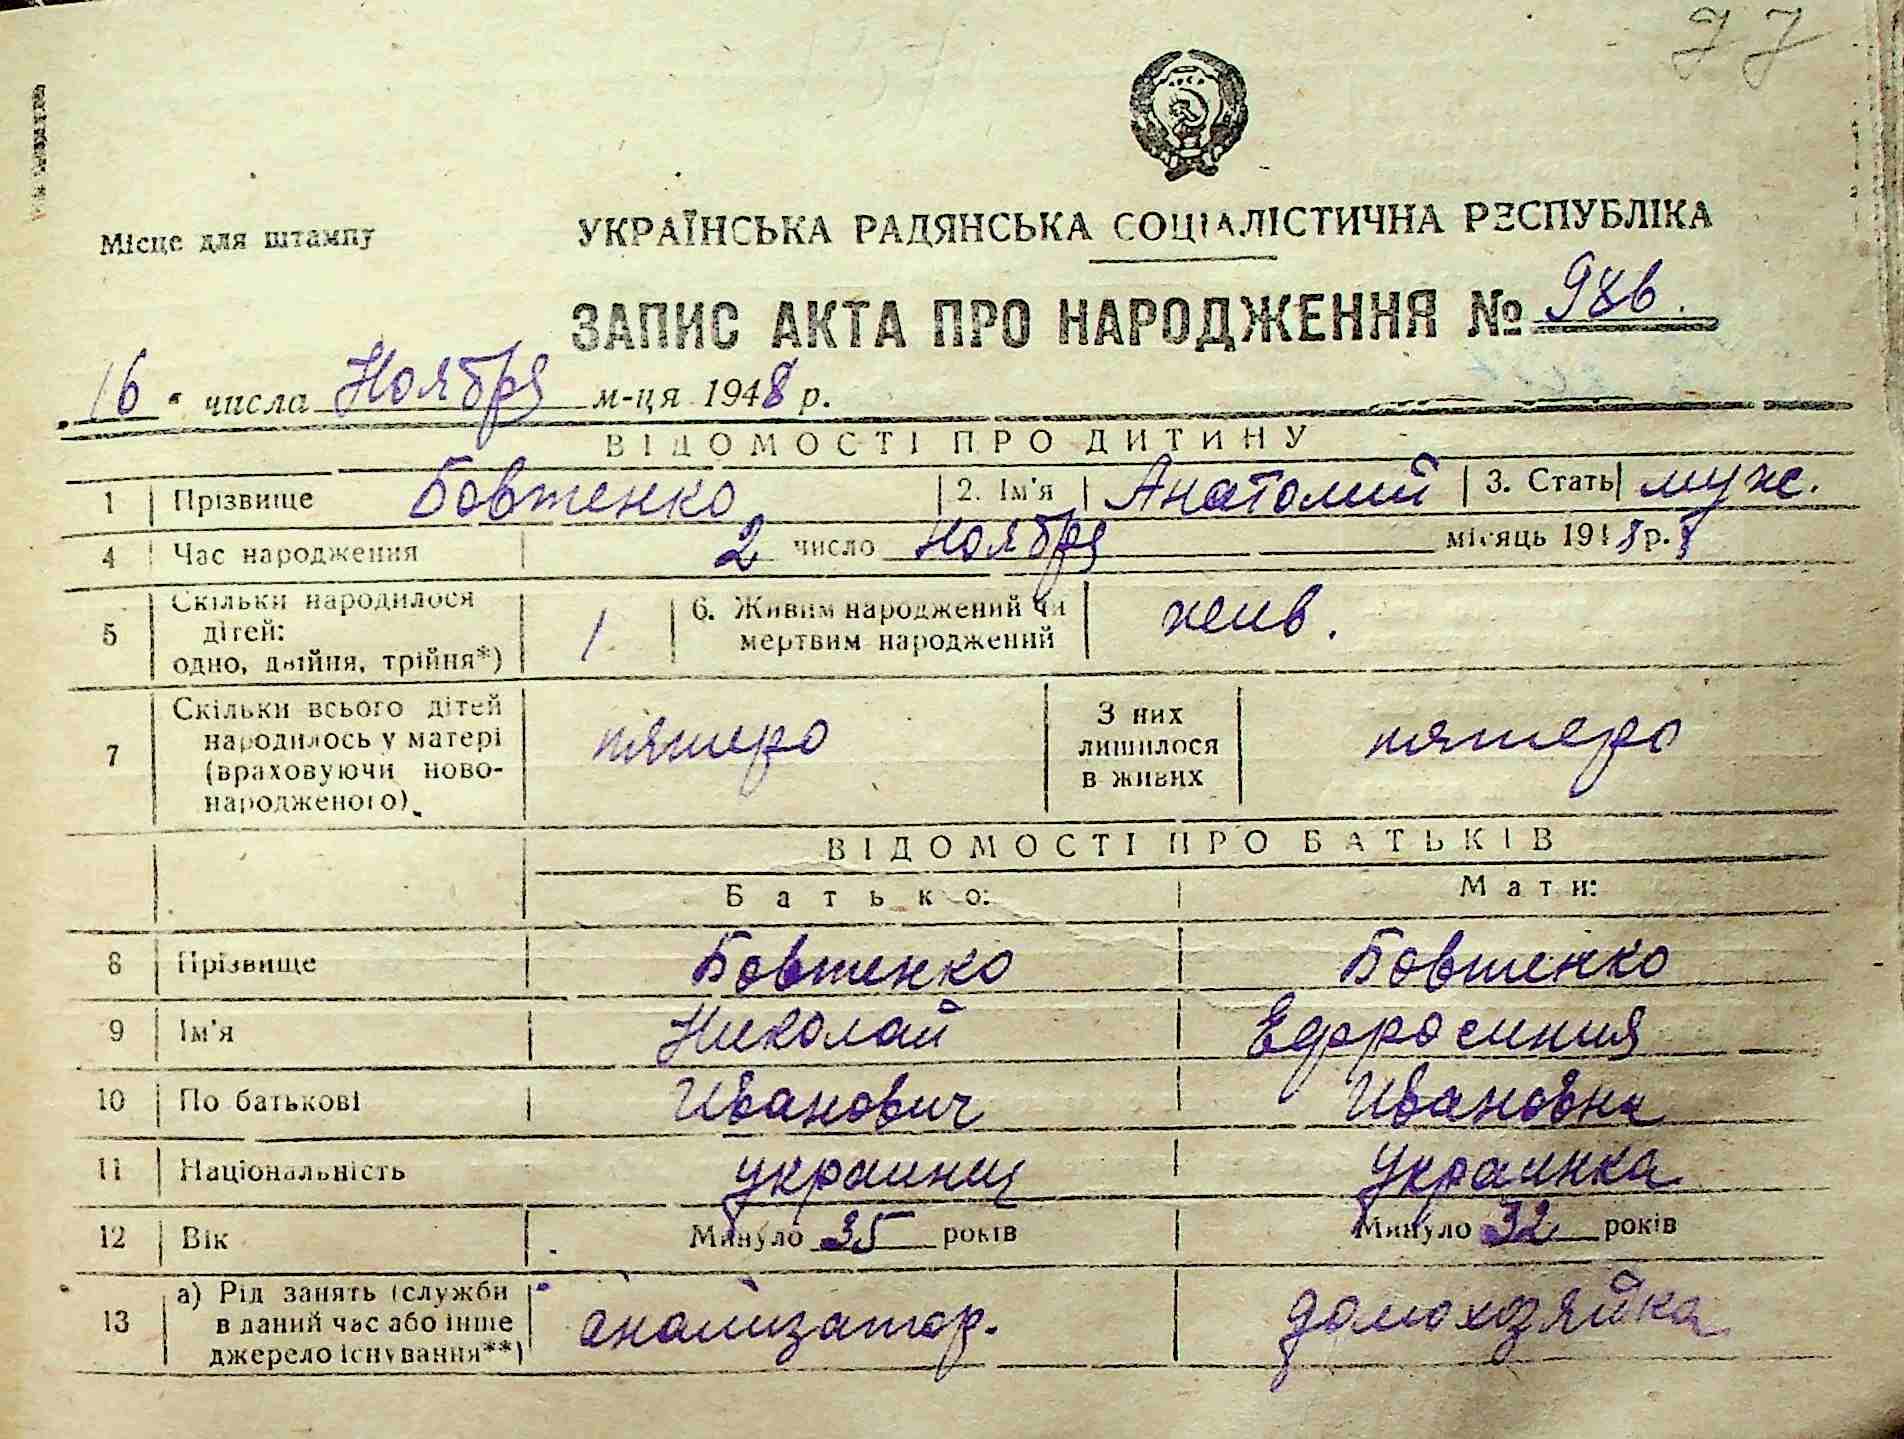 77
Місце для штампу
УКРАЇНСЬКА РАДЯНСЬКА СОЦІАЛІСТИЧНА РЕСПУБЛІКА
ЗАПИС АКТА ПРО НАРОДЖЕННЯ № 986.
16 числа Ноября м-ця 1948 р.
ВІДОМОСТІ ПРО ДИТИНУ
1 Прізвище Бовтенко 2. Ім'я Анатолий 3. Стать муж.
4 Час народження 2 число Ноября місяць 1948 р. 8
5 Скільки народилося дітей: одно, двійня, трійня*) 1 6. Живим народжений чи мертвим народжений жив.
7 Скільки всього дітей народилось у матері (враховуючи новонародженого) пятеро З них лишилося в живих пятеро
ВІДОМОСТІ ПРО БАТЬКІВ
Батько: Мати:
8 Прізвище Бовтенко Бовтенко
9 Ім'я Николай Ефросиния
10 По батькові Иванович Ивановна
11 Національність украинец украинка
12 Вік Минуло 35 років Минуло 32 років
13 а) Рід занять (служби в даний час або інше джерело існування**) домохозяйка